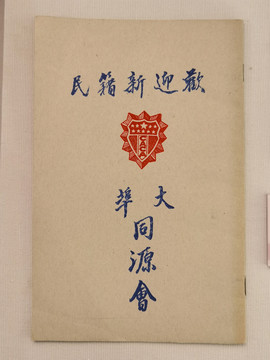 歡迎新籍民
CACA
大埠
同源會